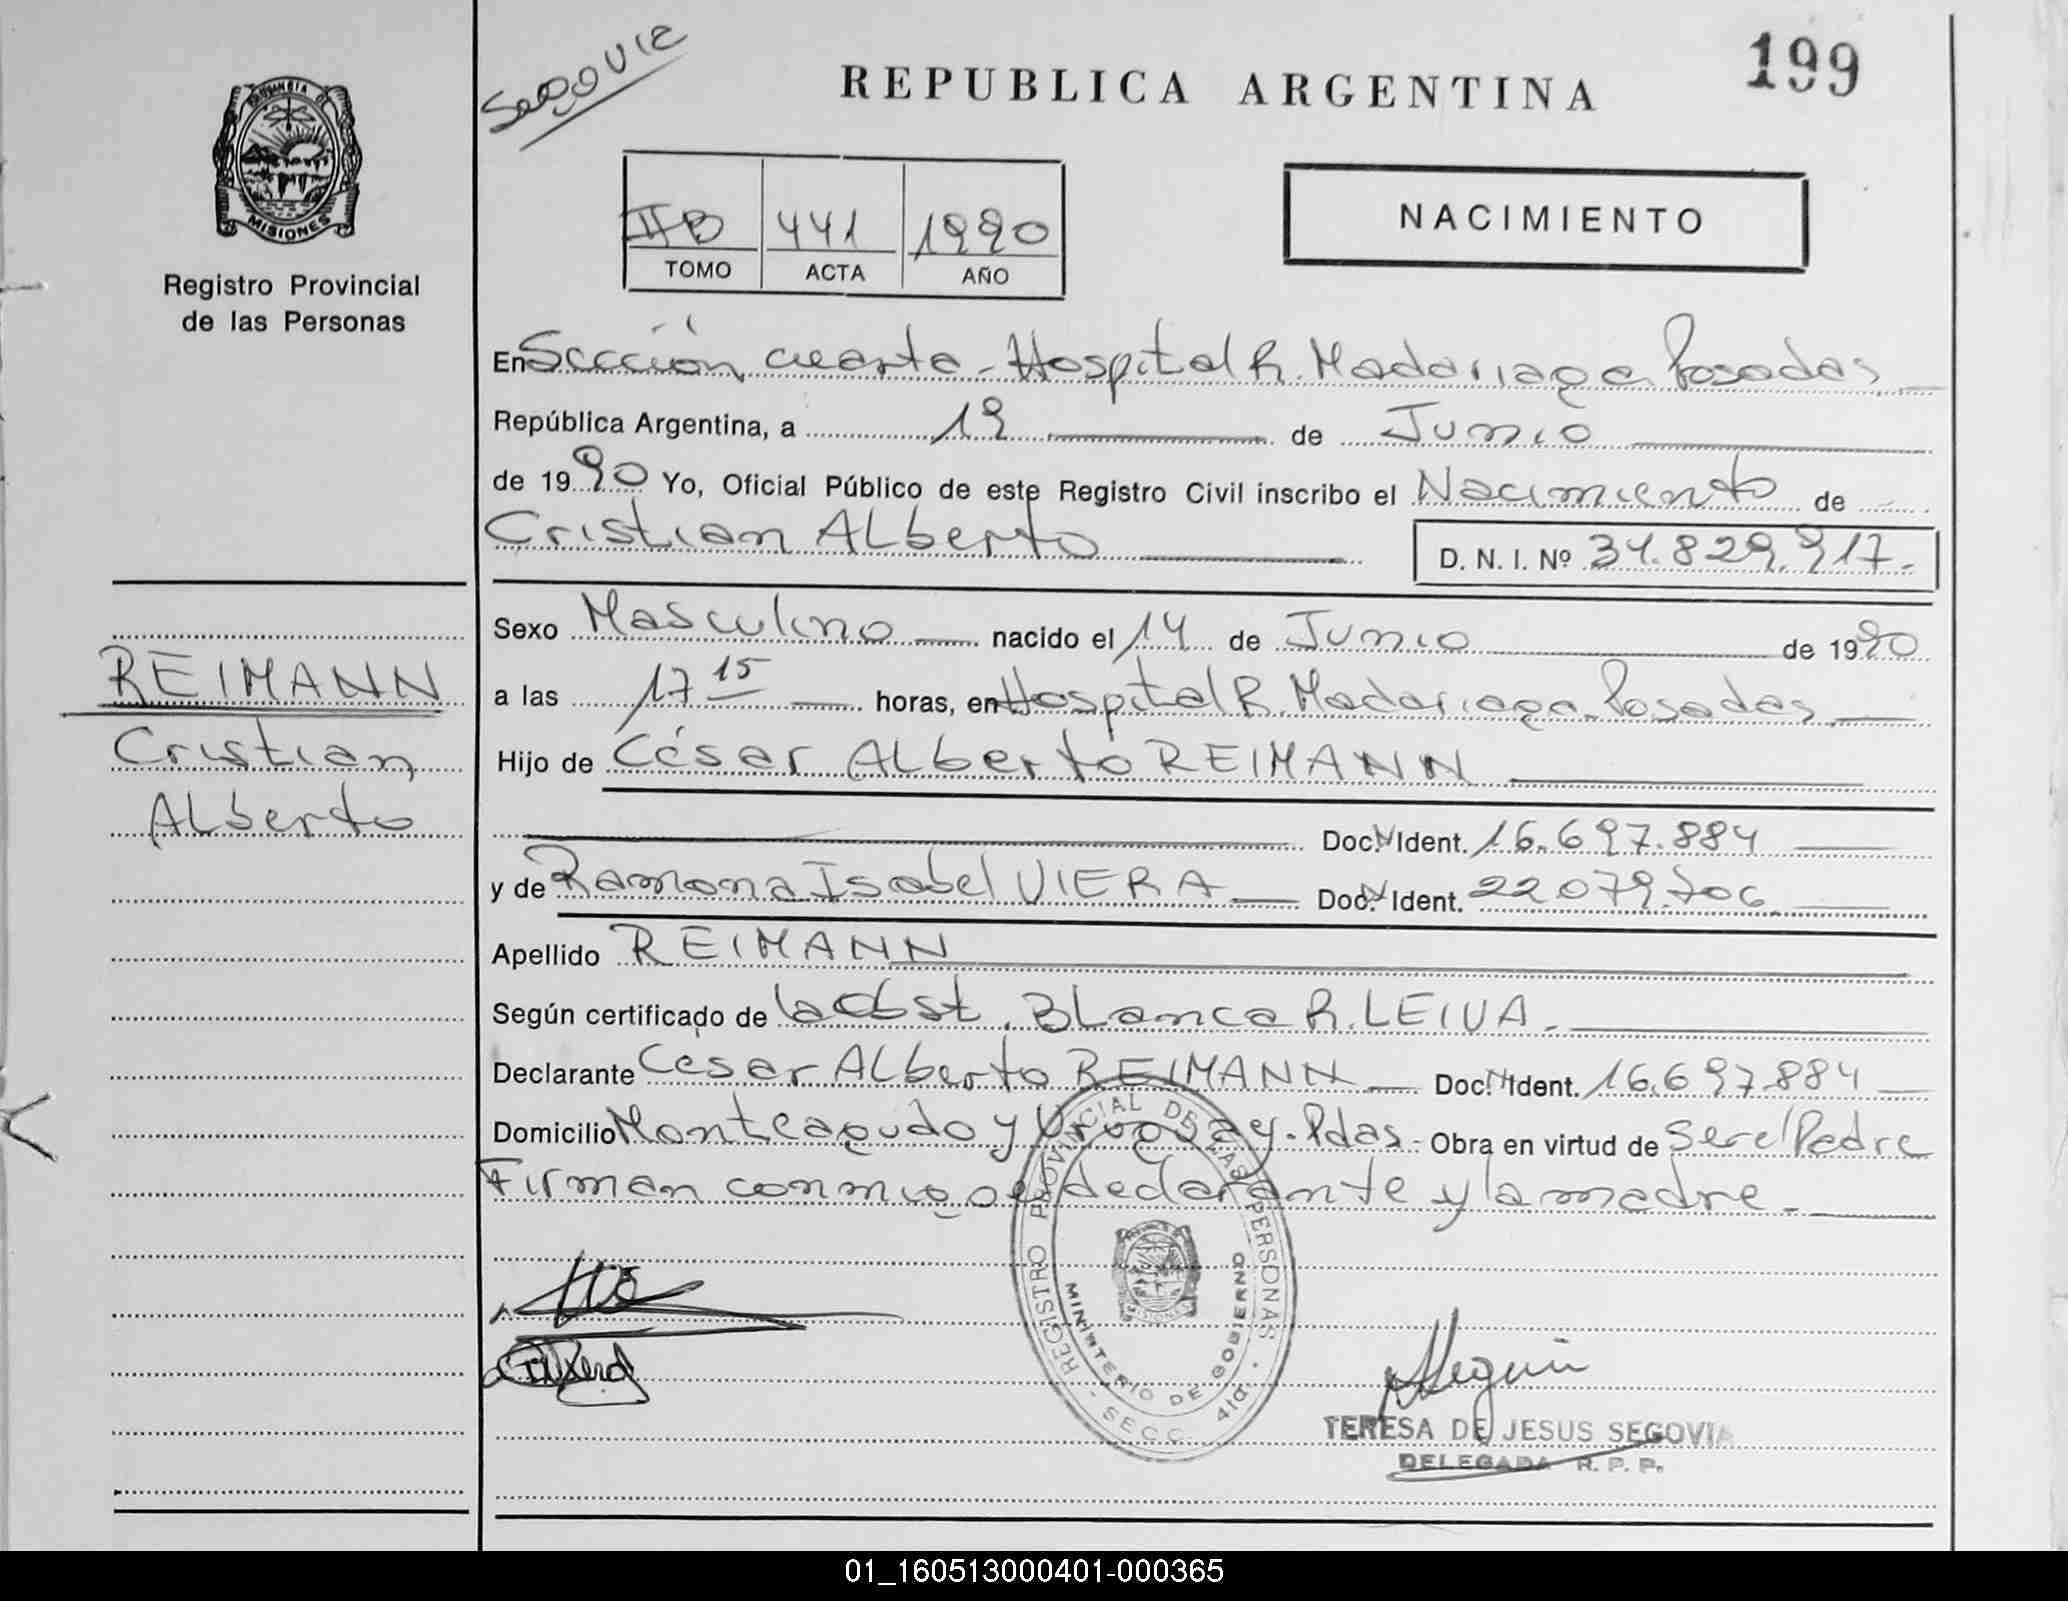 Segovia
REPUBLICA ARGENTINA
199
PROVINCIA DE
MISIONES
Registro Provincial
de las Personas
IIB 441 1990
TOMO ACTA AÑO
NACIMIENTO
En Sección cuarta - Hospital R. Madariaga Posadas
República Argentina, a 19 de Junio
de 1990 Yo, Oficial Público de este Registro Civil inscribo el Nacimiento de
Cristian ALberto
D. N. I. Nº 34.829.917.-
Sexo Masculino nacido el 14 de Junio de 1990
REIMANN
a las 17 15 horas, en Hospital R. Madariaga. Posadas
Cristian
Hijo de César ALberto REIMANN
ALberto
Doc. N Ident. 16.697.884
y de Ramona Isabel VIERA Doc. N Ident. 22.079.706
Apellido REIMANN
Según certificado de la Obst. BLanca R. LEIVA.
Declarante César ALberto REIMANN Doc. N Ident. 16.697.884
Domicilio Monteagudo y Uruguay - Pdas. - Obra en virtud de ser el Padre
Firman conmigo el declarante y la madre.
REGISTRO PROVINCIAL DE LAS PERSONAS
MINISTERIO DE GOBIERNO
SECC. 4ta.
TERESA DE JESUS SEGOVIA
DELEGADA R. P. P.
01_160513000401-000365